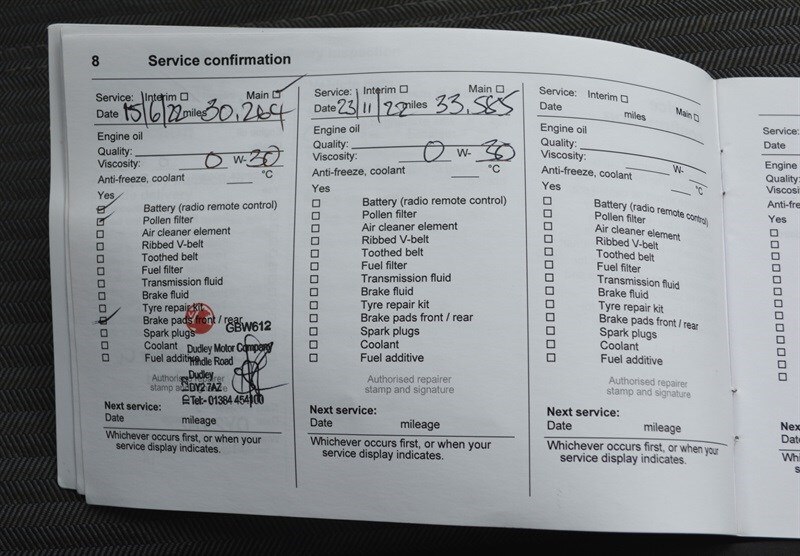 8 Service confirmation
Service: Interim Main
Date 15/6/22 miles 30.264
Engine oil
Quality:
Viscosity: 0 W- 30
Anti-freeze, coolant °C
Yes
Battery (radio remote control)
Pollen filter
Air cleaner element
Ribbed V-belt
Toothed belt
Fuel filter
Transmission fluid
Brake fluid
Tyre repair kit
Brake pads front / rear
Spark plugs
Coolant
Fuel additive
GBW612
Dudley Motor Company
Tindle Road
Dudley
DY2 7AZ
Tel:- 01384 454100
Authorised repairer
stamp and signature
Next service:
Date mileage
Whichever occurs first, or when your
service display indicates.
Service: Interim Main
Date 23/11/22 miles 33.585
Engine oil
Quality:
Viscosity: 0 W- 30
Anti-freeze, coolant °C
Yes
Battery (radio remote control)
Pollen filter
Air cleaner element
Ribbed V-belt
Toothed belt
Fuel filter
Transmission fluid
Brake fluid
Tyre repair kit
Brake pads front / rear
Spark plugs
Coolant
Fuel additive
Authorised repairer
stamp and signature
Next service:
Date mileage
Whichever occurs first, or when your
service display indicates.
Service: Interim Main
Date miles
Engine oil
Quality:
Viscosity: W-
Anti-freeze, coolant °C
Yes
Battery (radio remote control)
Pollen filter
Air cleaner element
Ribbed V-belt
Toothed belt
Fuel filter
Transmission fluid
Brake fluid
Tyre repair kit
Brake pads front / rear
Spark plugs
Coolant
Fuel additive
Authorised repairer
stamp and signature
Next service:
Date mileage
Whichever occurs first, or when your
service display indicates.
Service:
Date
Engine
Quality:
Viscosi
Anti-fre
Yes
Nex
Date
Whi
se